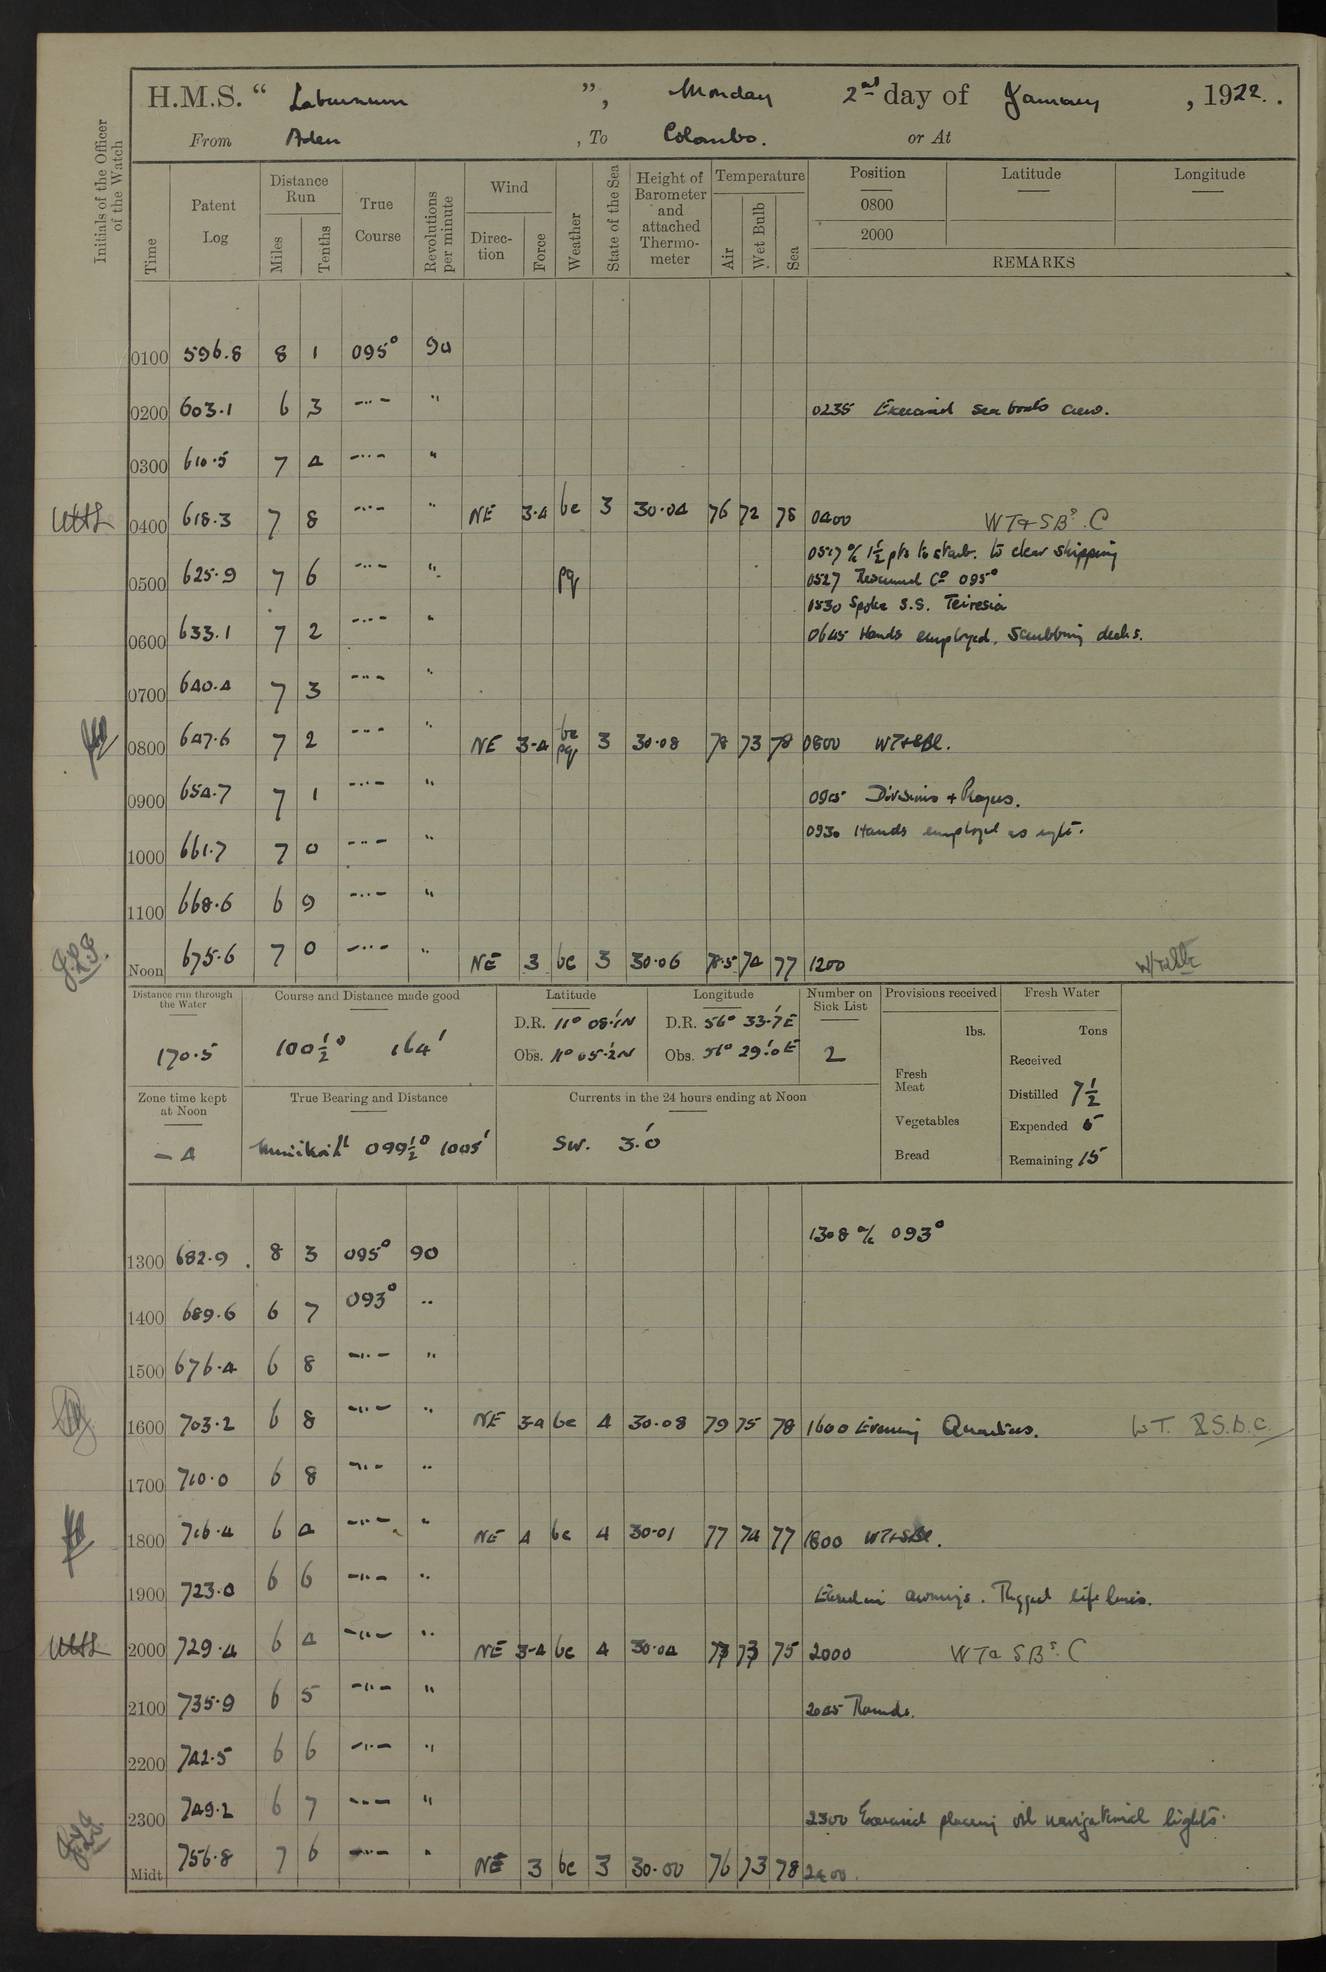 H.M.S. " Laburnum ", Monday 2nd day of January, 1922.
From Aden, To Colombo. or At
Initials of the Officer of the Watch
Time Patent Log Distance Run Miles Tenths True Course Revolutions per minute Wind Direction Force Weather State of the Sea Height of Barometer and attached Thermometer Temperature Air Wet Bulb Sea Position 0800 2000 Latitude Longitude
REMARKS
0100 596.8 8 1 095° 90
0200 603.1 6 3 -"- " 0235 Exercised sea boats crew.
0300 610.5 7 4 -"- "
0400 618.3 7 8 -"- " NE 3-4 bc 3 30.04 76 72 78 0400 WT & SBs. C
0517 a/c 1½ pts to starb. to clear shipping
0500 625.9 7 6 -"- " pq 0527 Resumed Co 095°
0530 Spoke S.S. Teiresia
0600 633.1 7 2 -"- " 0645 Hands employed, Scrubbing decks.
0700 640.4 7 3 -"- "
0800 647.6 7 2 -"- " NE 3-4 bc pq 3 30.08 78 73 78 0800 WT & SBC.
0900 654.7 7 1 -"- " 0905 Divisions + Prayers.
0930 Hands employed as reqte.
1000 661.7 7 0 -"- "
1100 668.6 6 9 -"- "
Noon 675.6 7 0 -"- " NE 3 bc 3 30.06 78.5 74 77 1200
Distance run through the Water Course and Distance made good Latitude Longitude Number on Sick List Provisions received Fresh Water
D.R. 11° 08.1'N D.R. 56° 33.7'E lbs. Tons
170.5 100½° 164' Obs. 11° 05.2'N Obs. 56° 29.0'E 2 Received
Fresh Meat Distilled 7½
Zone time kept at Noon True Bearing and Distance Currents in the 24 hours ending at Noon
Vegetables Expended 5
-4 Minikoi Lt 099½° 1005' SW. 3.0' Bread Remaining 15
1308 a/c 093°
1300 682.9 8 3 095° 90
1400 689.6 6 7 093° "
1500 676.4 6 8 -"- "
1600 703.2 6 8 -"- " NE 3-4 bc 4 30.08 79 75 78 1600 Evening Quarters. WT. & S.B.C.
1700 710.0 6 8 -"- "
1800 716.4 6 4 -"- " NE 4 bc 4 30.01 77 74 77 1800 WT & SBC.
1900 723.0 6 6 -"- " awnings. Rigged life lines.
2000 729.4 6 4 -"- " NE 3-4 bc 4 30.04 73 73 75 2000 WT & SBs. C
2100 735.9 6 5 -"- " 2045 Rounds.
2200 742.5 6 6 -"- "
2300 749.2 6 7 -"- " 2300 Exercised placing oil navigational lights.
Midt 756.8 7 6 -"- " NE 3 bc 3 30.00 76 73 78 2400.